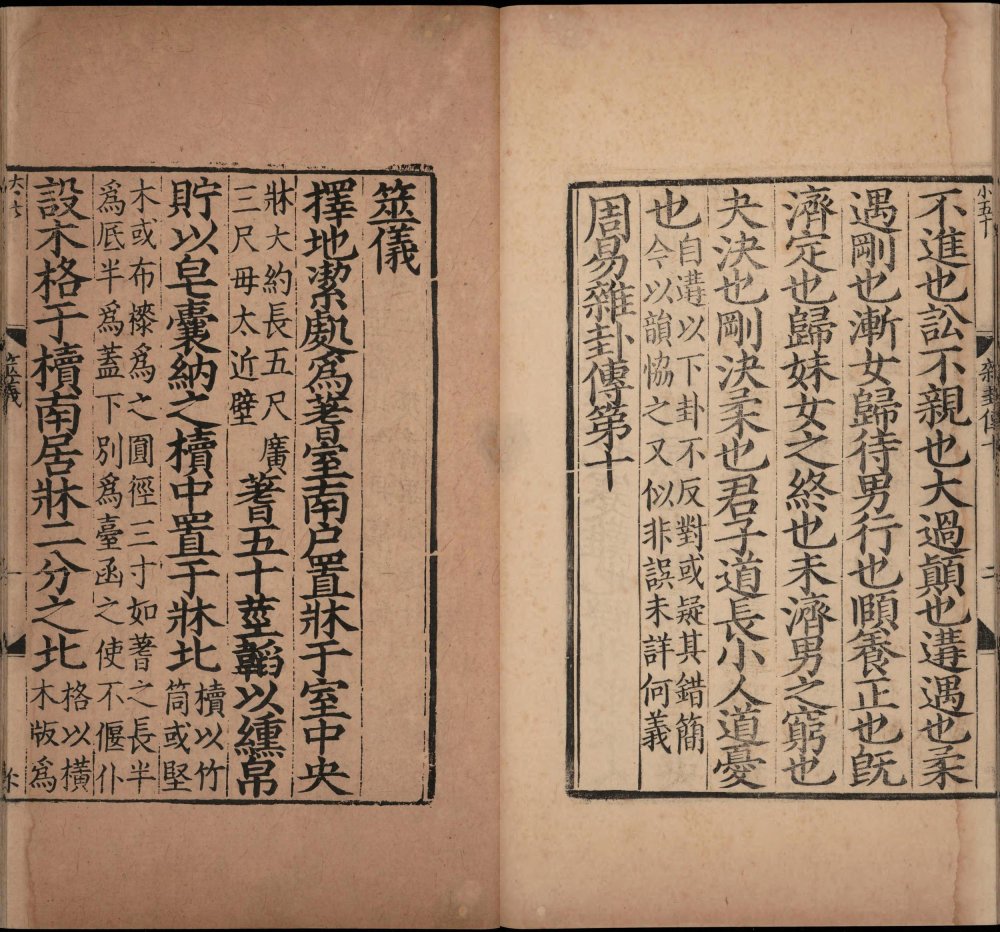 雜卦傳十
二
不進也訟不親也大過顛也遘遇也柔
遇剛也漸女歸待男行也頤養正也旣
濟定也歸妹女之終也未濟男之窮也
夬決也剛決柔也君子道長小人道憂
也
自遘以下卦不反對或疑其錯簡
今以韻恊之又似非誤未詳何義
周易雜卦傳第十
筮儀
擇地潔處爲蓍室南户置牀于室中央
牀大約長五尺廣
三尺毋太近壁
蓍五十莖韜以纁帛
貯以皂囊納之櫝中置于牀北
櫝以竹
筒或堅
木或布㯃爲之圓徑三寸如蓍之長半
爲厎半爲蓋下別爲臺函之使不偃仆
設木格于櫝南居牀二分之北
格以橫
木版爲